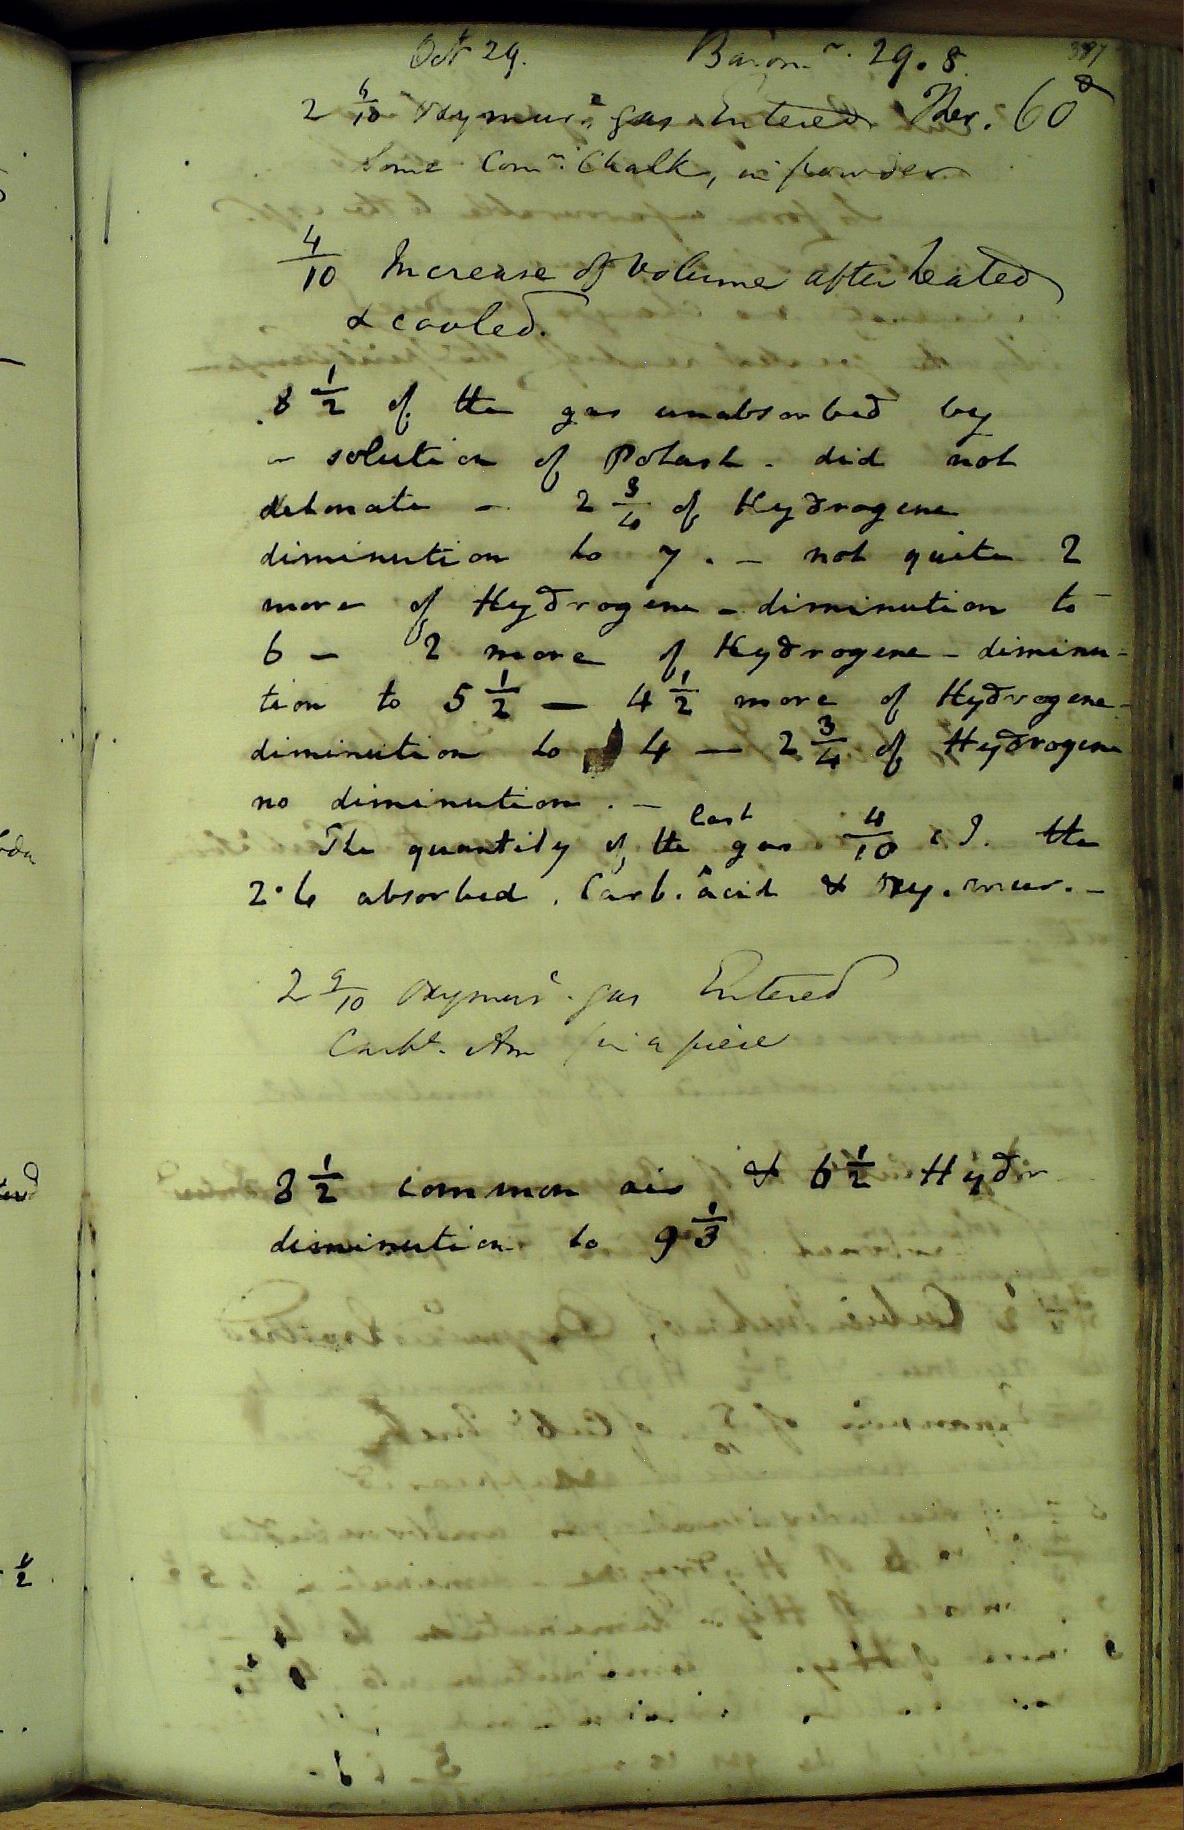 Octr 29. Barom.r 29.8. 387
2 6/10 Oxymur.c gas Entered Ther. 60°
Some Com.n Chalk, in powder
4/10 Increase of Volume after heated
& cooled.
8 1/2 of the gas unabsorbed by
solution of Potash - did not
detonate - 2 3/4 of Hydrogene
diminution to 7. - not quite 2
more of Hydrogene - diminution to
6 - 2 more of Hydrogene - diminu-
tion to 5 1/2 - 4 1/2 more of Hydrogene -
diminution to 4 - 2 3/4 of Hydrogene
no diminution. -
The quantity of the last gas 4/10 c I. the
2.6 absorbed. Carb. acid & Oxy. mur. -
2 9/10 Oxymurc. gas Entered
Carbt. Am in a piece
8 1/2 common air & 6 1/2 Hydr
diminution to 9 1/3